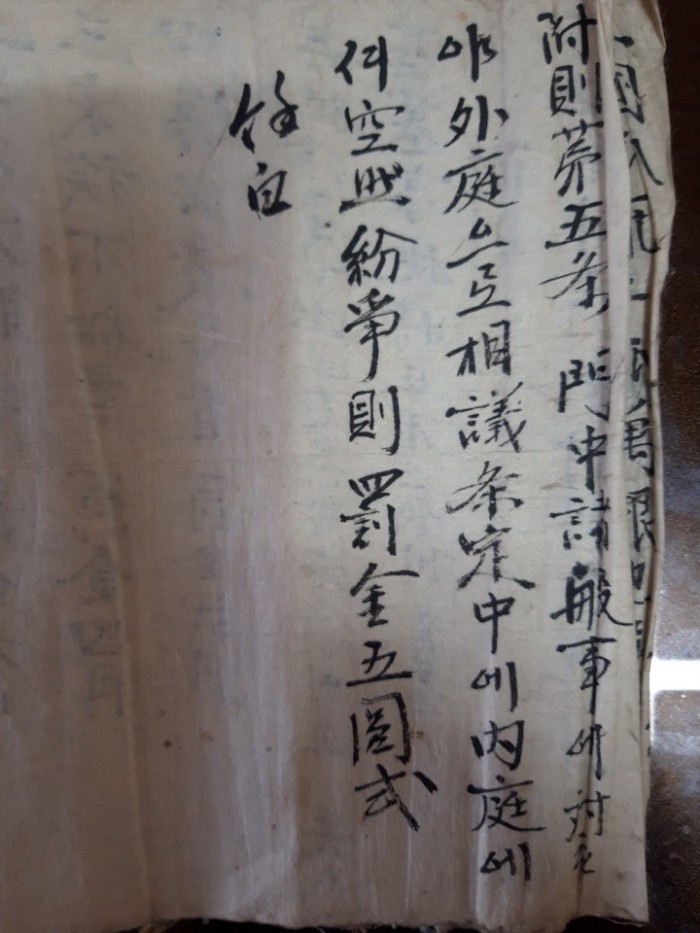 附則苐五条 門中諸般事에 対하
야外庭으로相議条定中에内庭에
셔空然紛爭則罰金五圓式
餘白